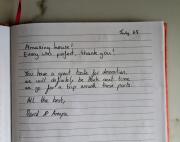 July 25
Amazing house!
Every was perfect, thank you!
You have a great taste for decoration
we will definitely be back next time
we go for a trip around these parts.
All the best,
& Amaya